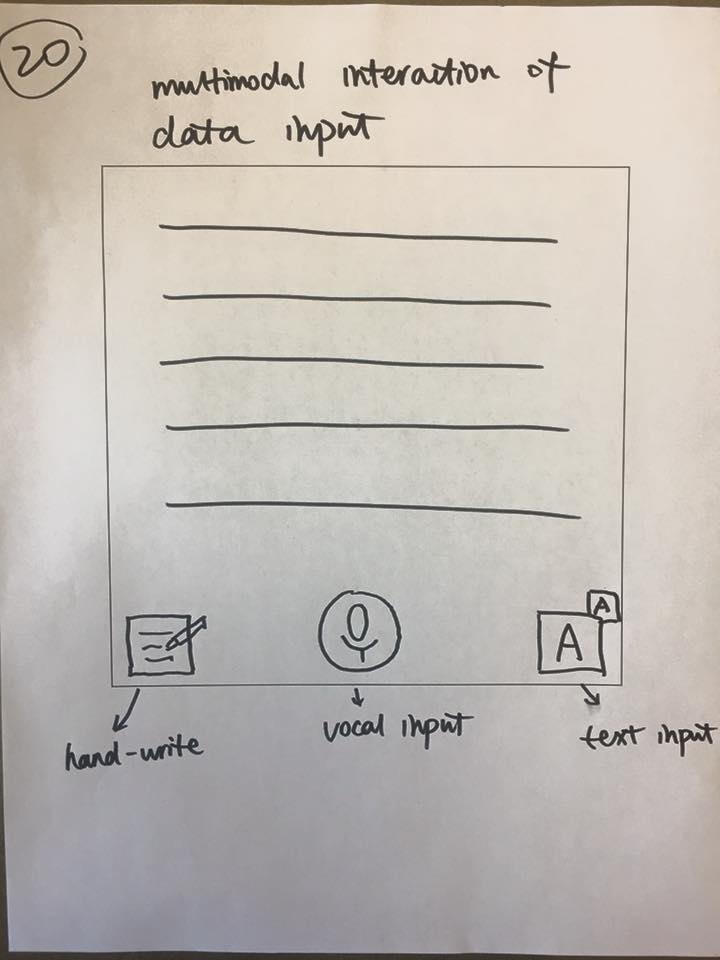 20
multimodal interaction of
data input
A
A
hand-write
vocal input
text input